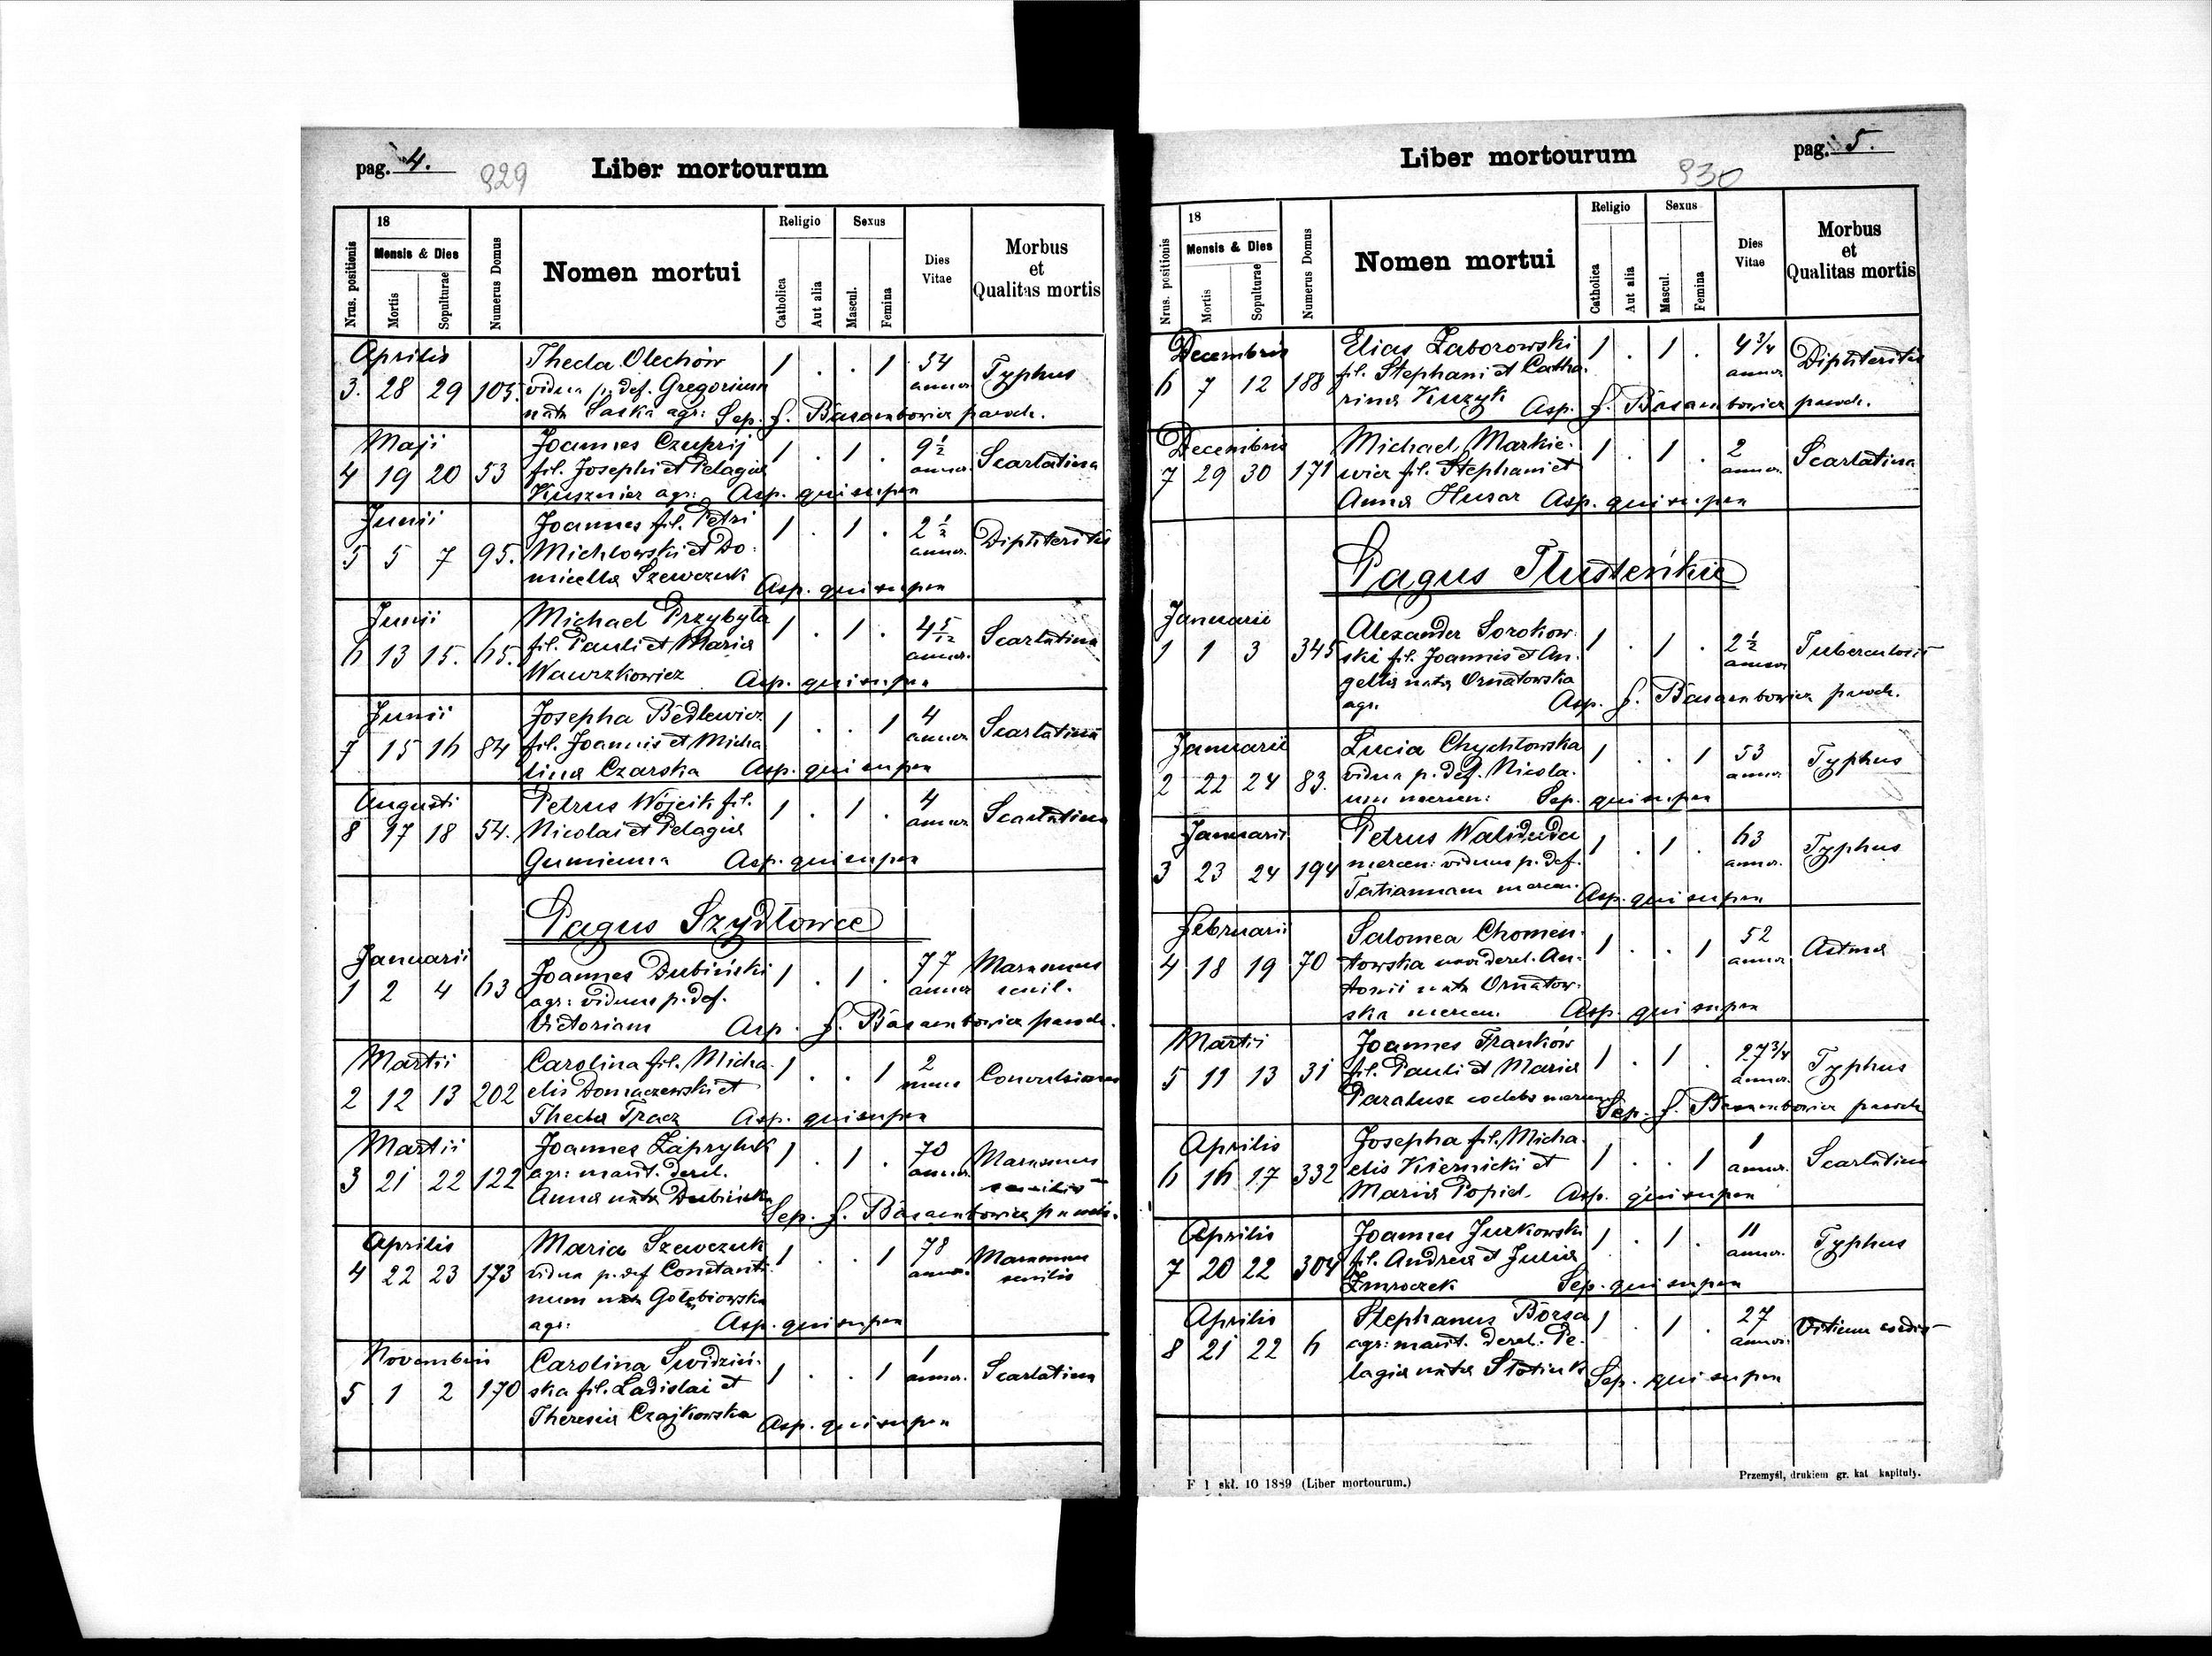 pag. 4.
929
Liber mortourum
Nrus. positionis
18
Mensis & Dies
Mortis
Sopulturae
Numerus Domus
Nomen mortui
Religio
Catholica
Aut alia
Sexus
Mascul.
Femina
Dies Vitae
Morbus et Qualitas mortis
Aprilis Thecla Olechów 1 . . 1 54
3. 28 29 105. vidua p. def. Gregorium annor. Typhus
nata Saska agr: Sep. J. Basaembowicz paroch.
Maji Joannes Czuprij 1 . 1 . 9 1/2
4 19 20 53 fil. Josephi et Pelagia annor. Scarlatina
Kusznier agr: Asp. qui supra
Junii Joannes fil. Petri 1 . 1 . 2 1/2
5 5 7 95. Michlowski et Do- annor. Diphteritis
micella Szewczuk Asp. qui supra
Junii Michael Przybyła 1 . 1 . 4 5/12
6 13 15. 65. fil. Pauli et Maria annor. Scarlatina
Wawrzkowicz Asp. qui supra
Junii Josepha Bedlewicz 1 . . 1 4
7 15 16 84 fil. Joannis et Micha annor. Scarlatina
lina Czarska Asp. qui supra
Augusti Petrus Wójcik fil. 1 . 1 . 4
8 17 18 54. Nicolai et Pelagia annor. Scarlatina
Gumienna Asp. qui supra
Pagus Szydłowce
Januarii Joannes Dubiński 1 . 1 . 77 Marasmus
1 2 4 63 agr: viduus p. def. annor. senil.
Victoriam Asp. J. Basaembowicz paroch.
Martii Carolina fil. Micha 1 . . 1 2
2 12 13 202 elis Domaczewski et mens Convulsiones
Thecla Tracz Asp. qui supra
Martii Joannes Zápryluk 1 . 1 . 70
3 21 22 122 agr: marit. derel. annor. Marasmus senilis
Anna nata Dubińska
Sep. J. Basaembowicz paroch.
Aprilis Maria Szewczuk 1 . . 1 78
4 22 23 173 vidua p. def Constanti annor. Marasmus senilis
num nata Gołębiowska
agr: Asp. qui supra
Novembris Carolina Swidziń- 1 . . 1 1
5 1 2 170 ska fil. Ladislai et annor. Scarlatina
Theresia Czajkowska Asp. qui supra
Liber mortourum
930
pag. 5.
Nrus. positionis
18
Mensis & Dies
Mortis
Sopulturae
Numerus Domus
Nomen mortui
Religio
Catholica
Aut alia
Sexus
Mascul.
Femina
Dies Vitae
Morbus et Qualitas mortis
Decembris Elias Zaborowski 1 . 1 . 4 3/4
6 7 12 188 fil. Stephani et Catha- annor. Diphteritis
rina Kuzyk Asp. J. Basaembowicz paroch.
Decembris Michael Markie- 1 . 1 . 2
7 29 30 171 wicz fil. Stephani et annor. Scarlatina
Anna Husar Asp. qui supra
Pagus Tłusteńkie
Januarii Alexander Sorokow- 1 . 1 . 2 1/2
1 1 3 345 ski fil. Joannis et An- annor Tuberculosis
gella nata Ornatowska
agr. Asp. J. Basaembowicz paroch.
Januarii Lucia Chychłowska 1 . . 1 53
2 22 24 83. vidua p. def. Nicola- annor Typhus
um mercen: Sep. qui supra
Januarii Petrus Walidudu 1 . 1 . 63
3 23 24 194 mercen: viduus p. def. annor. Typhus
Tatiannam mercen. Asp. qui supra
Februarii Salomea Chomen- 1 . . 1 52
4 18 19 70 towska derel. An- annor Astma
tonii nata Ornatow-
ska mercen. Asp. qui supra
Martii Joannes Franków 1 . 1 . 27 3/4
5 11 13 31 fil. Pauli et Maria annor. Typhus
Paralusz coelebs mercen
Sep. J. Basaembowicz paroch
Aprilis Josepha fil. Micha- 1 . . 1 1
6 16 17 332 elis Kiernicki et annor. Scarlatina
Maria Popiel. Asp. qui supra
Aprilis Joannes Jurkowski 1 . 1 . 11
7 20 22 304 fil. Andrea et Julia annor. Typhus
Zmroczek Sep. qui supra
Aprilis Stephanus Borsa 1 . 1 . 27
8 21 22 6 agr: marit. derel. Pe- annor. Vitium cordis
lagia nata Slotiuk Sep. qui supra
F 1 skł. 10 1889 (Liber mortourum.)
Przemyśl, drukiem gr. kat kapituły.